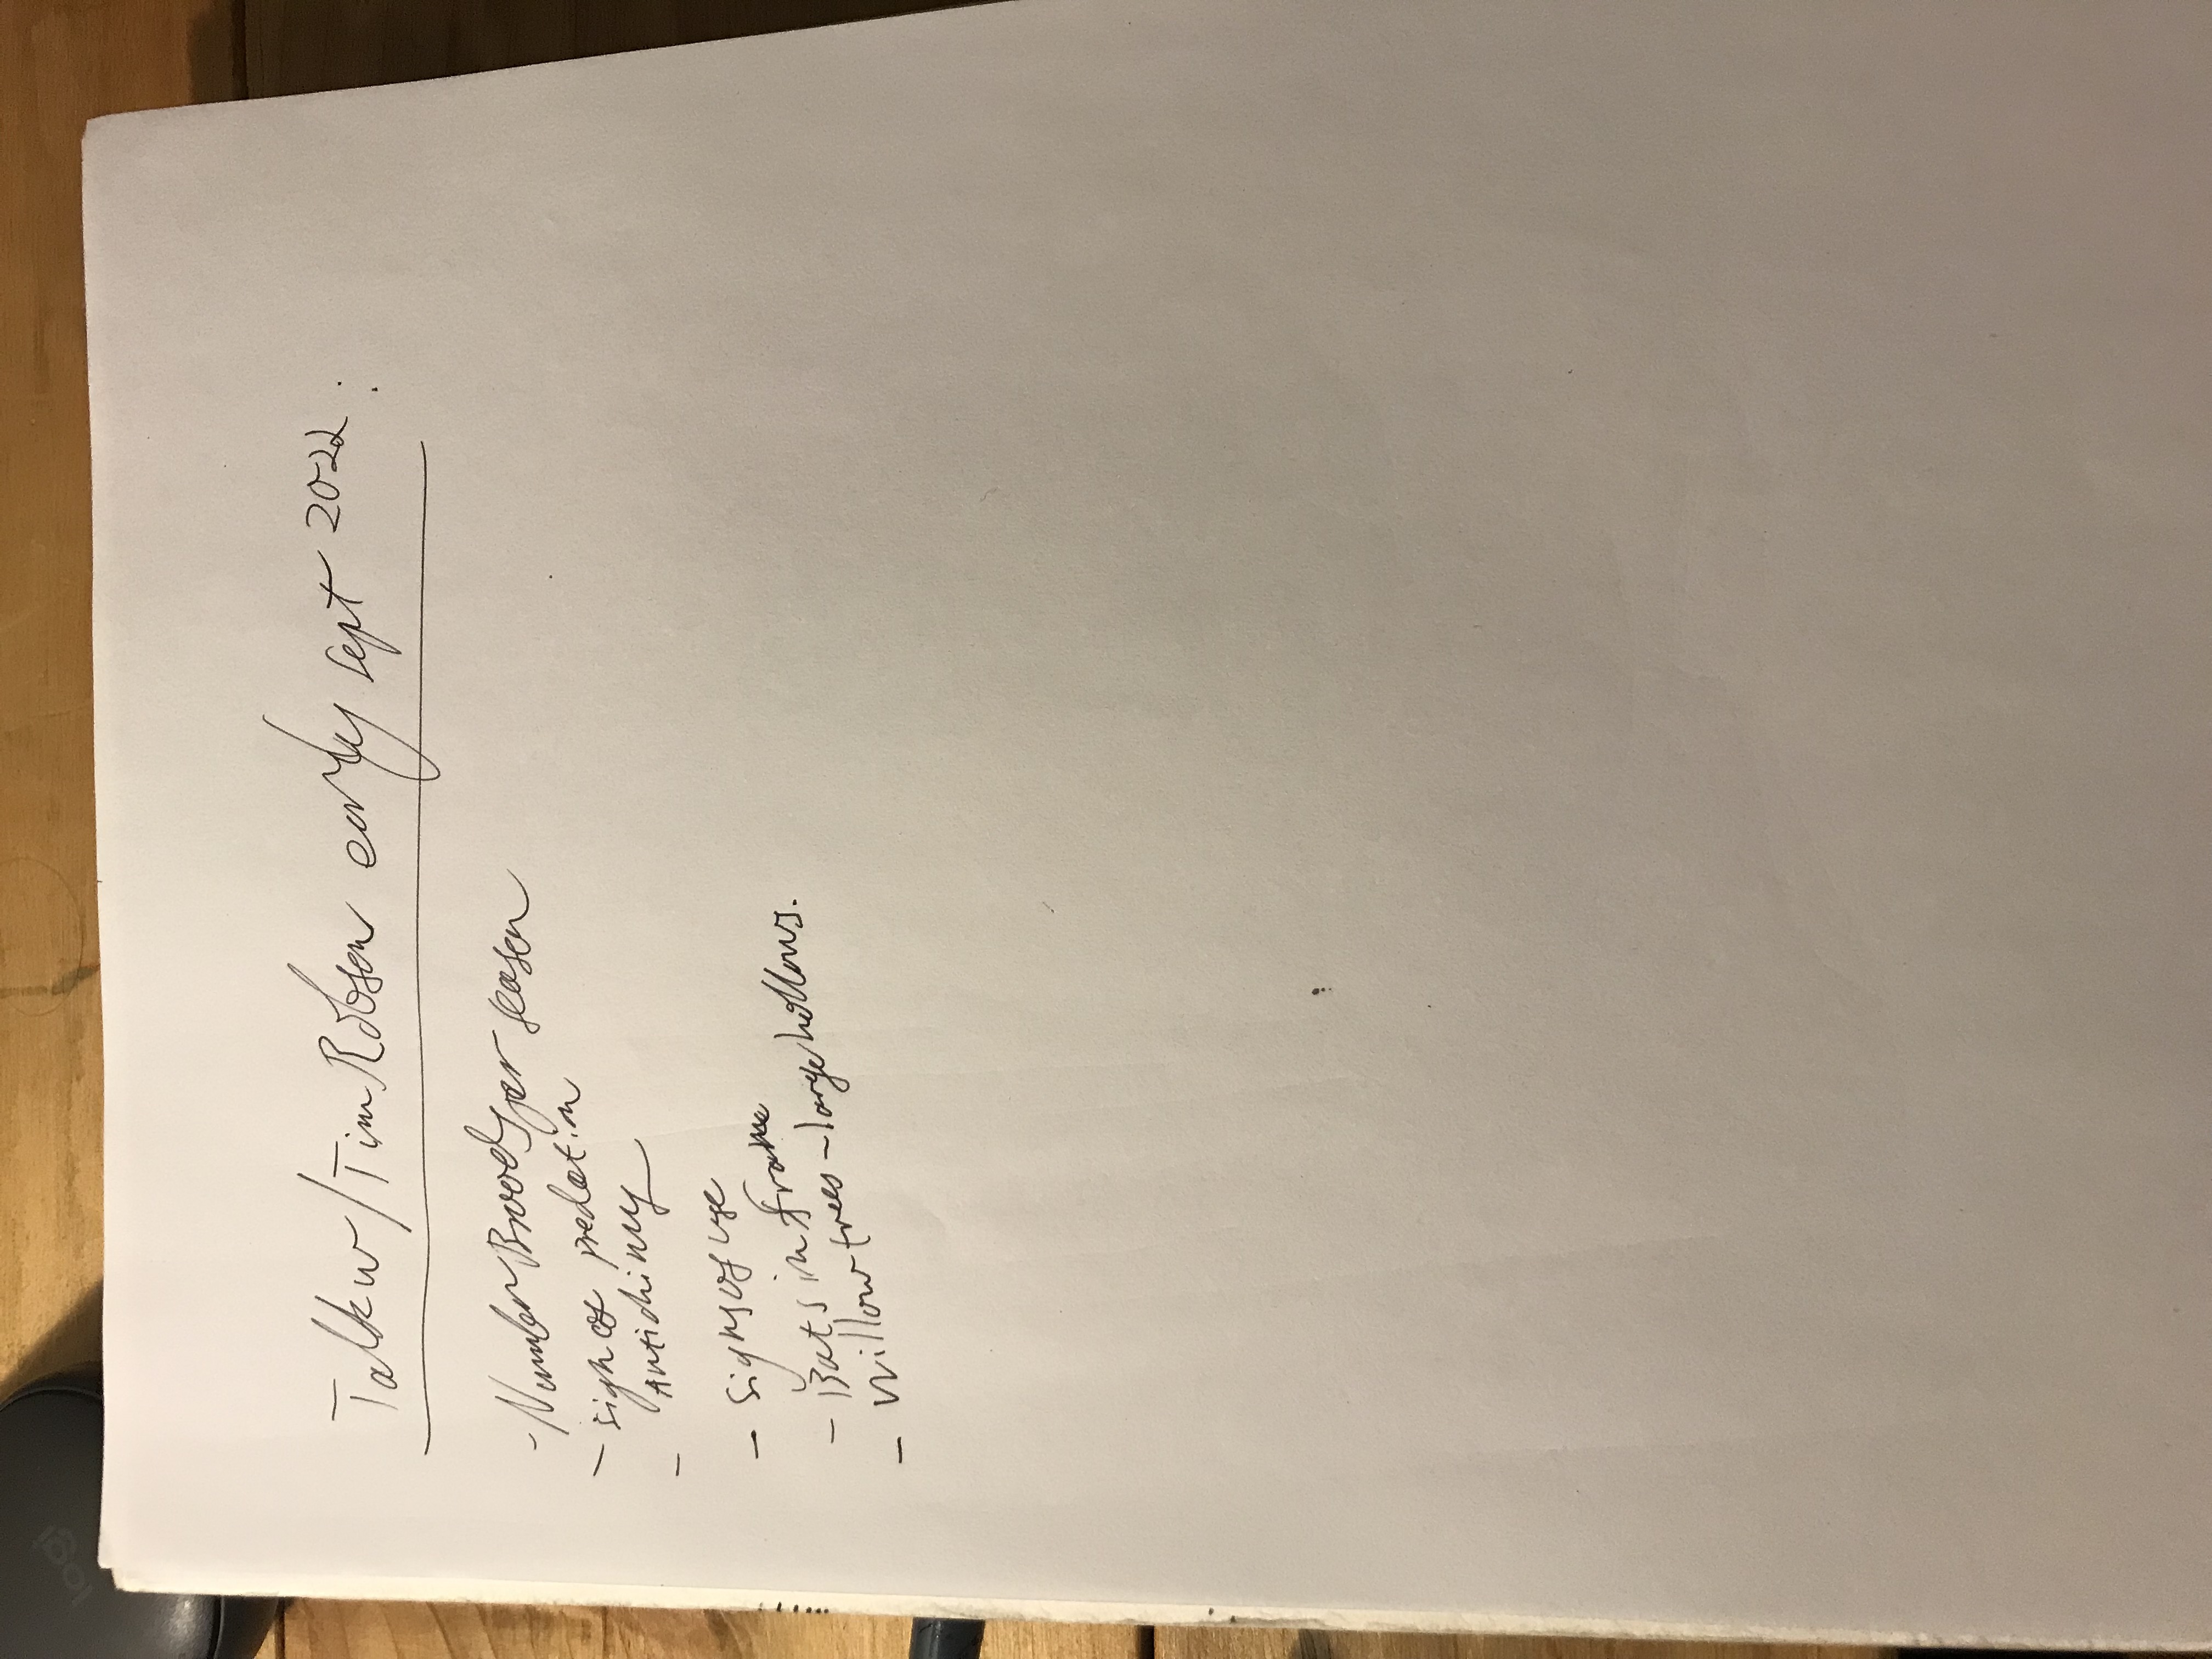 logi
Talk w/ Tim Robson early Sept 2022.
- Number Broods per season
- sign of predation
- Antichinus
- Signs of use
- Bats in frame
- Willow trees - large hollows.